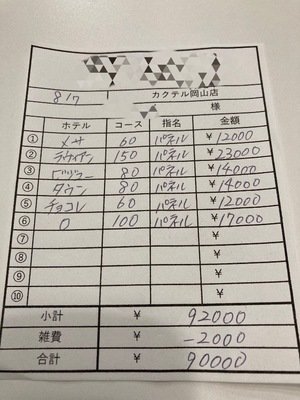 カクテル岡山店
8/7 様
ホテル コース 指名 金額
① メサ 60 パネル ¥12000
② 150 パネル ¥23000
③ 80 パネル ¥14000
④ タウン 80 パネル ¥14000
⑤ チョコレ 60 パネル ¥12000
⑥ 100 パネル ¥17000
⑦ ¥
⑧ ¥
⑨ ¥
⑩ ¥
小計 ¥ 92000
雑費 ¥ -2000
合計 ¥ 90000